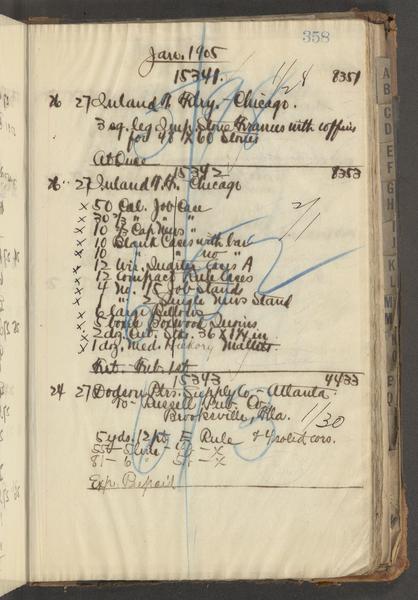 358
Jan. 1905
15341. 1/28 8351
26 27 Inland T. Fdry. - Chicago.
3 sq. leg Imp. Stone Frames with coffins
for 48 x 60 Stones
At Once
15342 8353
26 27 Inland T. F. Chicago
x 50 Cal. Job Case
x 30 2/3 " " "
x 10 2/3 Cap News "
x 10 Blank Cases with bar
x 10 " " no "
x 12 Wis. Quarter Cases A
x 12 Compact Rule Cases
x 4 No. 15 Job Stands
x 1 " 2 Single News Stand
x 6 large Bellows
x 2 boxes Boxwood Quoins
x 2 doz. Cut. Stks. 36 x 1 3/4 in.
x 1 doz. Med. Hickory Mallets.
Frt. Feb. 1st
15343 4433
24 27 Dodson Ptrs. Supply Co. - Atlanta.
To - Russell Pub. Co.
Brooksville, Fla. 1/30
5 yds. 12 pt. E Rule & 4 solid cors.
Exp. Prepaid
A
B
C
D
E
F
G
H
I
J
K
L
M